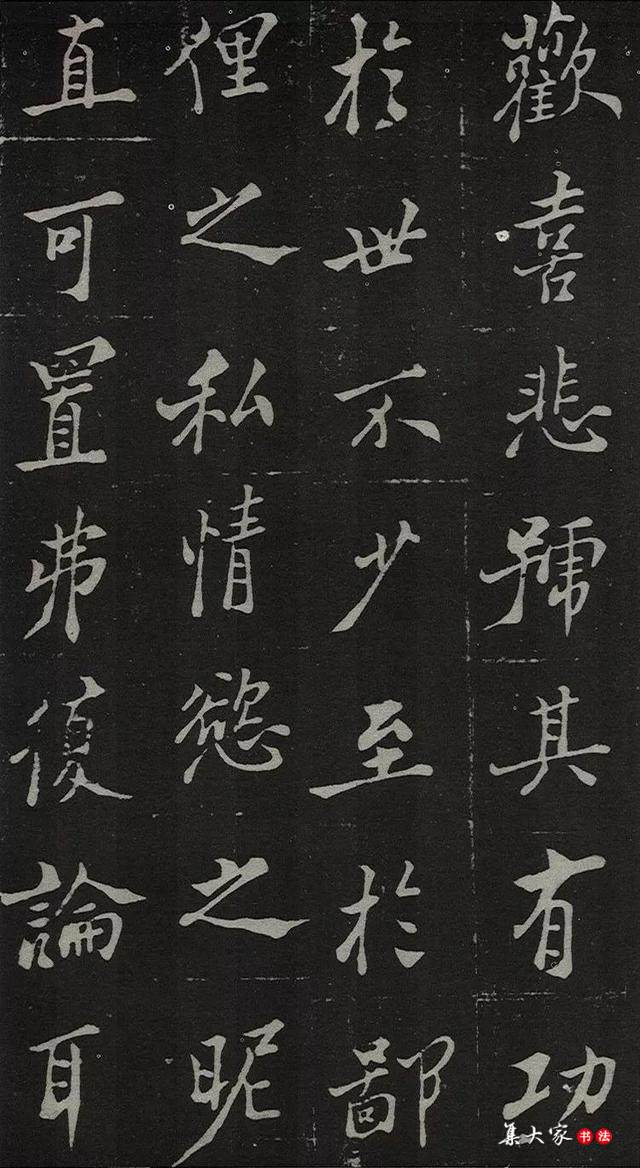 歡喜悲號其有功
於世不少至於鄙
俚之私情慾之昵
直可置弗復論耳
集大家書法